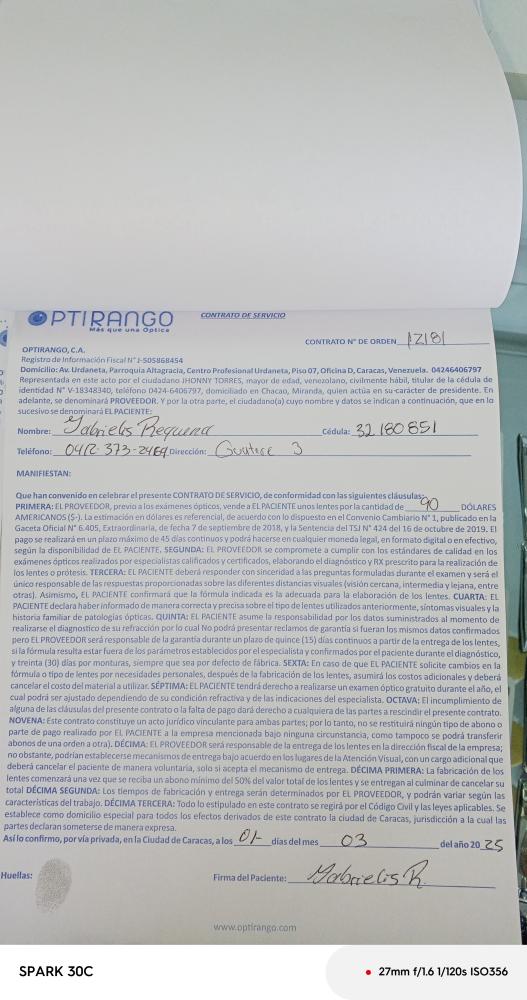 OPTIRANGO
Más que una Optica
CONTRATO DE SERVICIO
CONTRATO N° DE ORDEN 12181
OPTIRANGO, C.A.
Registro de Información Fiscal N° J-505868454
Domicilio: Av. Urdaneta, Parroquia Altagracia, Centro Profesional Urdaneta, Piso 07, Oficina D, Caracas, Venezuela. 04246406797
Representada en este acto por el ciudadano JHONNY TORRES, mayor de edad, venezolano, civilmente hábil, titular de la cédula de
identidad N° V-18348340, teléfono 0424-6406797, domiciliado en Chacao, Miranda, quien actúa en su carácter de presidente. En
adelante, se denominará PROVEEDOR. Y por la otra parte, el ciudadano(a) cuyo nombre y datos se indican a continuación, que en lo
sucesivo se denominará EL PACIENTE:
Nombre: Gabrielis Requena Cédula: 32180851
Teléfono: 0412-373-2469 Dirección: 3
MANIFIESTAN:
Que han convenido en celebrar el presente CONTRATO DE SERVICIO, de conformidad con las siguientes cláusulas:
PRIMERA: EL PROVEEDOR, previo a los exámenes ópticos, vende a EL PACIENTE unos lentes por la cantidad de 90 DÓLARES
AMERICANOS ($-). La estimación en dólares es referencial, de acuerdo con lo dispuesto en el Convenio Cambiario N° 1, publicado en la
Gaceta Oficial N° 6.405, Extraordinaria, de fecha 7 de septiembre de 2018, y la Sentencia del TSJ N° 424 del 16 de octubre de 2019. El
pago se realizará en un plazo máximo de 45 días continuos y podrá hacerse en cualquier moneda legal, en formato digital o en efectivo,
según la disponibilidad de EL PACIENTE. SEGUNDA: EL PROVEEDOR se compromete a cumplir con los estándares de calidad en los
exámenes ópticos realizados por especialistas calificados y certificados, elaborando el diagnóstico y RX prescrito para la realización de
los lentes o prótesis. TERCERA: EL PACIENTE deberá responder con sinceridad a las preguntas formuladas durante el examen y será el
único responsable de las respuestas proporcionadas sobre las diferentes distancias visuales (visión cercana, intermedia y lejana, entre
otras). Asimismo, EL PACIENTE confirmará que la fórmula indicada es la adecuada para la elaboración de los lentes. CUARTA: EL
PACIENTE declara haber informado de manera correcta y precisa sobre el tipo de lentes utilizados anteriormente, síntomas visuales y la
historia familiar de patologías ópticas. QUINTA: EL PACIENTE asume la responsabilidad por los datos suministrados al momento de
realizarse el diagnostico de su refracción por lo cual No podrá presentar reclamos de garantía si fueran los mismos datos confirmados
pero EL PROVEEDOR será responsable de la garantía durante un plazo de quince (15) días continuos a partir de la entrega de los lentes,
si la fórmula resulta estar fuera de los parámetros establecidos por el especialista y confirmados por el paciente durante el diagnóstico,
y treinta (30) días por monturas, siempre que sea por defecto de fábrica. SEXTA: En caso de que EL PACIENTE solicite cambios en la
fórmula o tipo de lentes por necesidades personales, después de la fabricación de los lentes, asumirá los costos adicionales y deberá
cancelar el costo del material a utilizar. SÉPTIMA: EL PACIENTE tendrá derecho a realizarse un examen óptico gratuito durante el año, el
cual podrá ser ajustado dependiendo de su condición refractiva y de las indicaciones del especialista. OCTAVA: El incumplimiento de
alguna de las cláusulas del presente contrato o la falta de pago dará derecho a cualquiera de las partes a rescindir el presente contrato.
NOVENA: Este contrato constituye un acto jurídico vinculante para ambas partes; por lo tanto, no se restituirá ningún tipo de abono o
parte de pago realizado por EL PACIENTE a la empresa mencionada bajo ninguna circunstancia, como tampoco se podrá transferir
abonos de una orden a otra). DÉCIMA: EL PROVEEDOR será responsable de la entrega de los lentes en la dirección fiscal de la empresa;
no obstante, podrían establecerse mecanismos de entrega bajo acuerdo en los lugares de la Atención Visual, con un cargo adicional que
deberá cancelar el paciente de manera voluntaria, solo si acepta el mecanismo de entrega. DÉCIMA PRIMERA: La fabricación de los
lentes comenzará una vez que se reciba un abono mínimo del 50% del valor total de los lentes y se entregan al culminar de cancelar su
total DÉCIMA SEGUNDA: Los tiempos de fabricación y entrega serán determinados por EL PROVEEDOR, y podrán variar según las
características del trabajo. DÉCIMA TERCERA: Todo lo estipulado en este contrato se regirá por el Código Civil y las leyes aplicables. Se
establece como domicilio especial para todos los efectos derivados de este contrato la ciudad de Caracas, jurisdicción a la cual las
partes declaran someterse de manera expresa.
Así lo confirmo, por vía privada, en la Ciudad de Caracas, a los 01 días del mes 03 del año 2025
Huellas: Firma del Paciente: Gabrielis R.
www.optirango.com
SPARK 30C
27mm f/1.6 1/120s ISO356